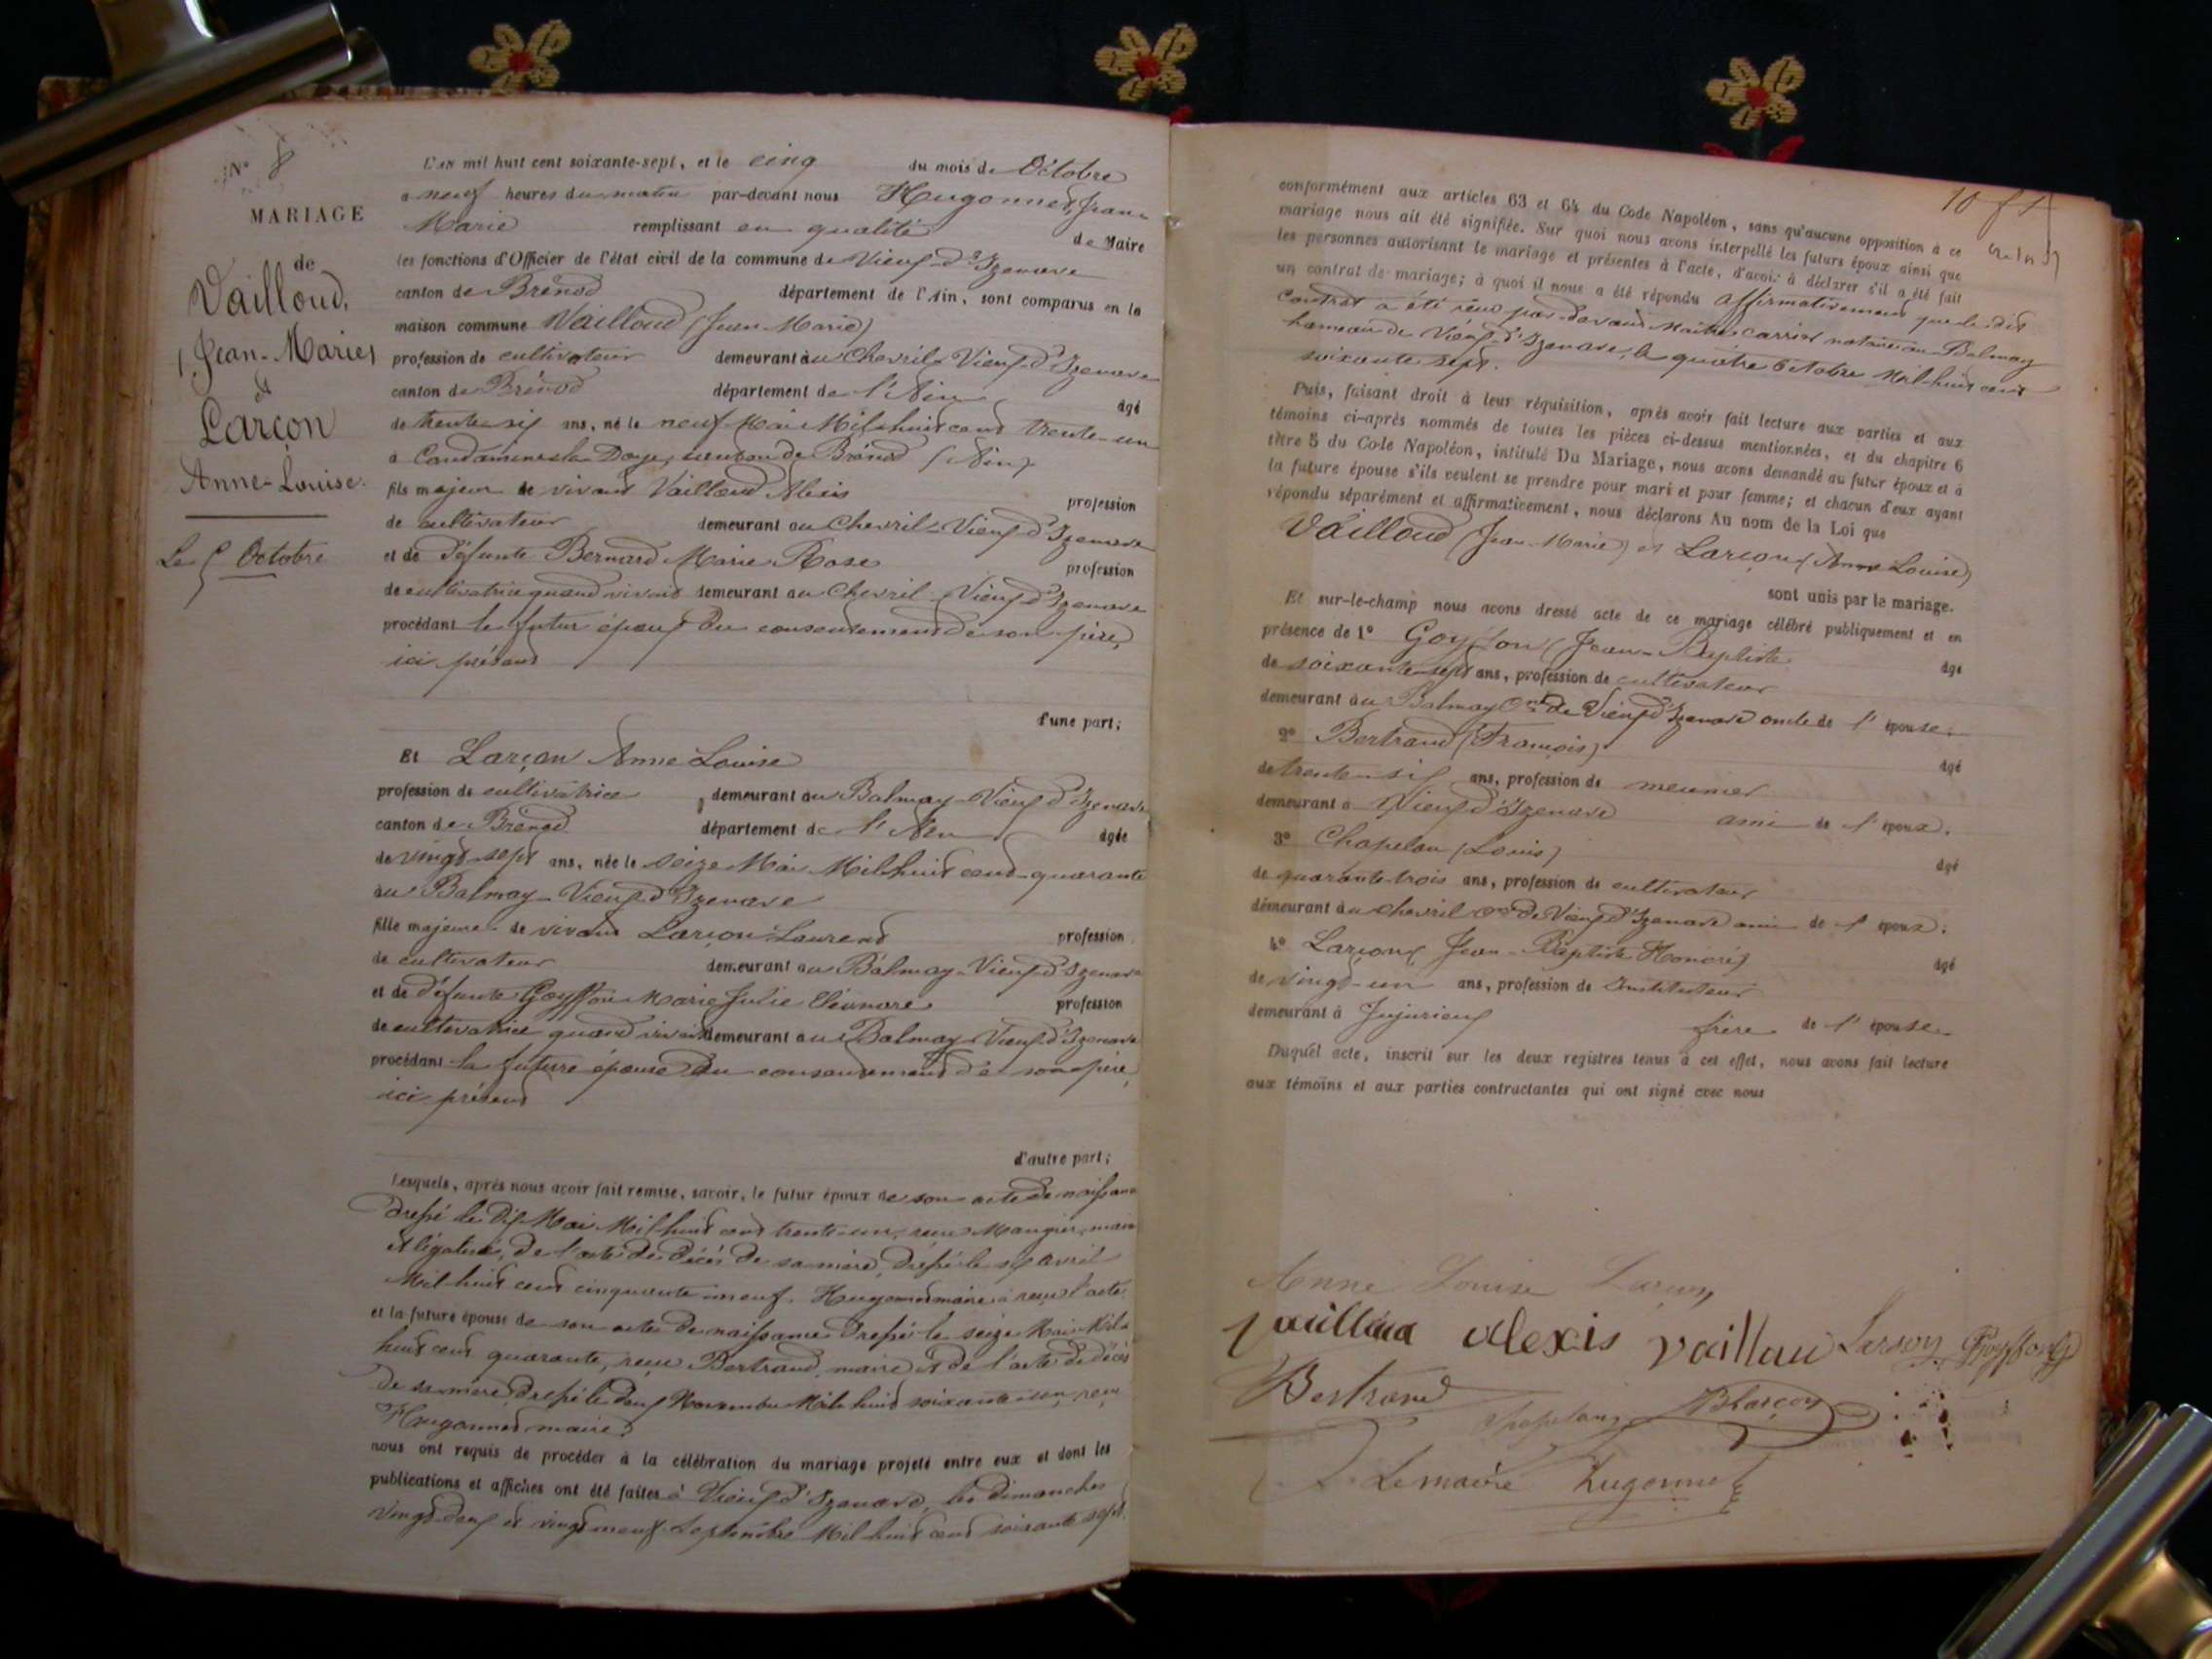 N° 8
MARIAGE
de
Vailloud,
(Jean-Marie)
et
Larçon
Anne-Louise.
Le 5 Octobre
L'an mil huit cent soixante-sept, et le cinq du mois de Octobre
a neuf heures du matin par-devant nous Hugonnet, Jean-
Marie remplissant en qualité de Maire
les fonctions d'Officier de l'état civil de la commune de Vieux-d'Izenave
canton de Brénod département de l'Ain, sont comparus en la
maison commune Vailloud (Jean-Marie)
profession de cultivateur demeurant au Chevril-Vieux-d'Izenave
canton de Brénod département de l'Ain âgé
de trente-six ans, né le neuf Mai Mil huit cent trente-un
à Condamine-la-Doye, canton de Brénod (Ain)
fils majeur de vivant Vailloud Alexis profession
de cultivateur demeurant au Chevril-Vieux d'Izenave
et de défunte Bernard Marie Rose profession
de cultivatrice quand vivait demeurant au Chevril-Vieux d'Izenave
procédant le futur époux du consentement de son père,
ici présent
d'une part;
Et Larçon Anne Louise
profession de cultivatrice demeurant au Balmay-Vieux d'Izenave
canton de Brénod département de l'Ain âgée
de vingt-sept ans, née le seize Mai Mil huit cent quarante
au Balmay-Vieux d'Izenave
fille majeure de vivant Larçon Laurent profession
de cultivateur demeurant au Balmay-Vieux d'Izenave
et de défunte Goyffon Marie Julie Eléonore profession
de cultivatrice quand vivait demeurant au Balmay-Vieux d'Izenave
procédant la future épouse du consentement de son père,
ici présent
d'autre part;
Lesquels, après nous avoir fait remise, savoir, le futur époux de son acte de naissance
dressé le dix Mai Mil huit cent trente-un, reçu Mangier, maire
et légalisé, de l'acte de décès de sa mère, dressé le avril
Mil huit cent cinquante neuf. Hugonnet maire a reçu l'acte.
et la future épouse de son acte de naissance dressé le seize Mai Mil
huit cent quarante, reçu Bertrand, maire et de l'acte de décès
de sa mère, dressé le deux Novembre Mil huit soixante-un, reçu
Hugonnet maire.
nous ont requis de procéder à la célébration du mariage projeté entre eux et dont les
publications et affiches ont été faites à Vieux d'Izenave, les dimanches
vingt-deux et vingt neuf Septembre Mil huit cent soixante sept.
conformément aux articles 63 et 64 du Code Napoléon, sans qu'aucune opposition à ce
mariage nous ait été signifiée. Sur quoi nous avons interpellé les futurs époux ainsi que
les personnes autorisant le mariage et présentes à l'acte, d'avoir à déclarer s'il a été fait
un contrat de mariage; à quoi il nous a été répondu affirmativement que le dit
contrat a été reçu par devant Maître Carrier notaire au Balmay
hameau de Vieux d'Izenave, le quatre Octobre Mil huit cent
soixante sept.
Puis, faisant droit à leur réquisition, après avoir fait lecture aux parties et aux
témoins ci-après nommés de toutes les pièces ci-dessus mentionnées, et du chapitre 6
titre 5 du Code Napoléon, intitulé Du Mariage, nous avons demandé au futur époux et à
la future épouse s'ils veulent se prendre pour mari et pour femme; et chacun d'eux ayant
répondu séparément et affirmativement, nous déclarons Au nom de la Loi que
Vailloud (Jean-Marie) et Larçon (Anne Louise)
sont unis par le mariage.
Et sur-le-champ nous avons dressé acte de ce mariage célébré publiquement et en
présence de 1° Goyffon (Jean-Baptiste âgé
de soixante-sept ans, profession de cultivateur
demeurant au Balmay Cne de Vieux d'Izenave oncle de l'épouse.
2° Bertrand (François) âgé
de trente-six ans, profession de meunier
demeurant à Vieux d'Izenave ami de l'époux.
3° Chapelan (Louis) âgé
de quarante-trois ans, profession de cultivateur
demeurant au Chevril Cne de Vieux d'Izenave ami de l'époux.
4° Larçon (Jean-Baptiste Honoré) âgé
de vingt-un ans, profession de Instituteur
demeurant à Jujurieux frère de l'épouse.
Duquel acte, inscrit sur les deux registres tenus à cet effet, nous avons fait lecture
aux témoins et aux parties contractantes qui ont signé avec nous
Anne Louise Larçon
vailloud alexis vaillou Larçon Goyffon
Bertrand Chapelan JB Larçon
Le maire Hugonnet